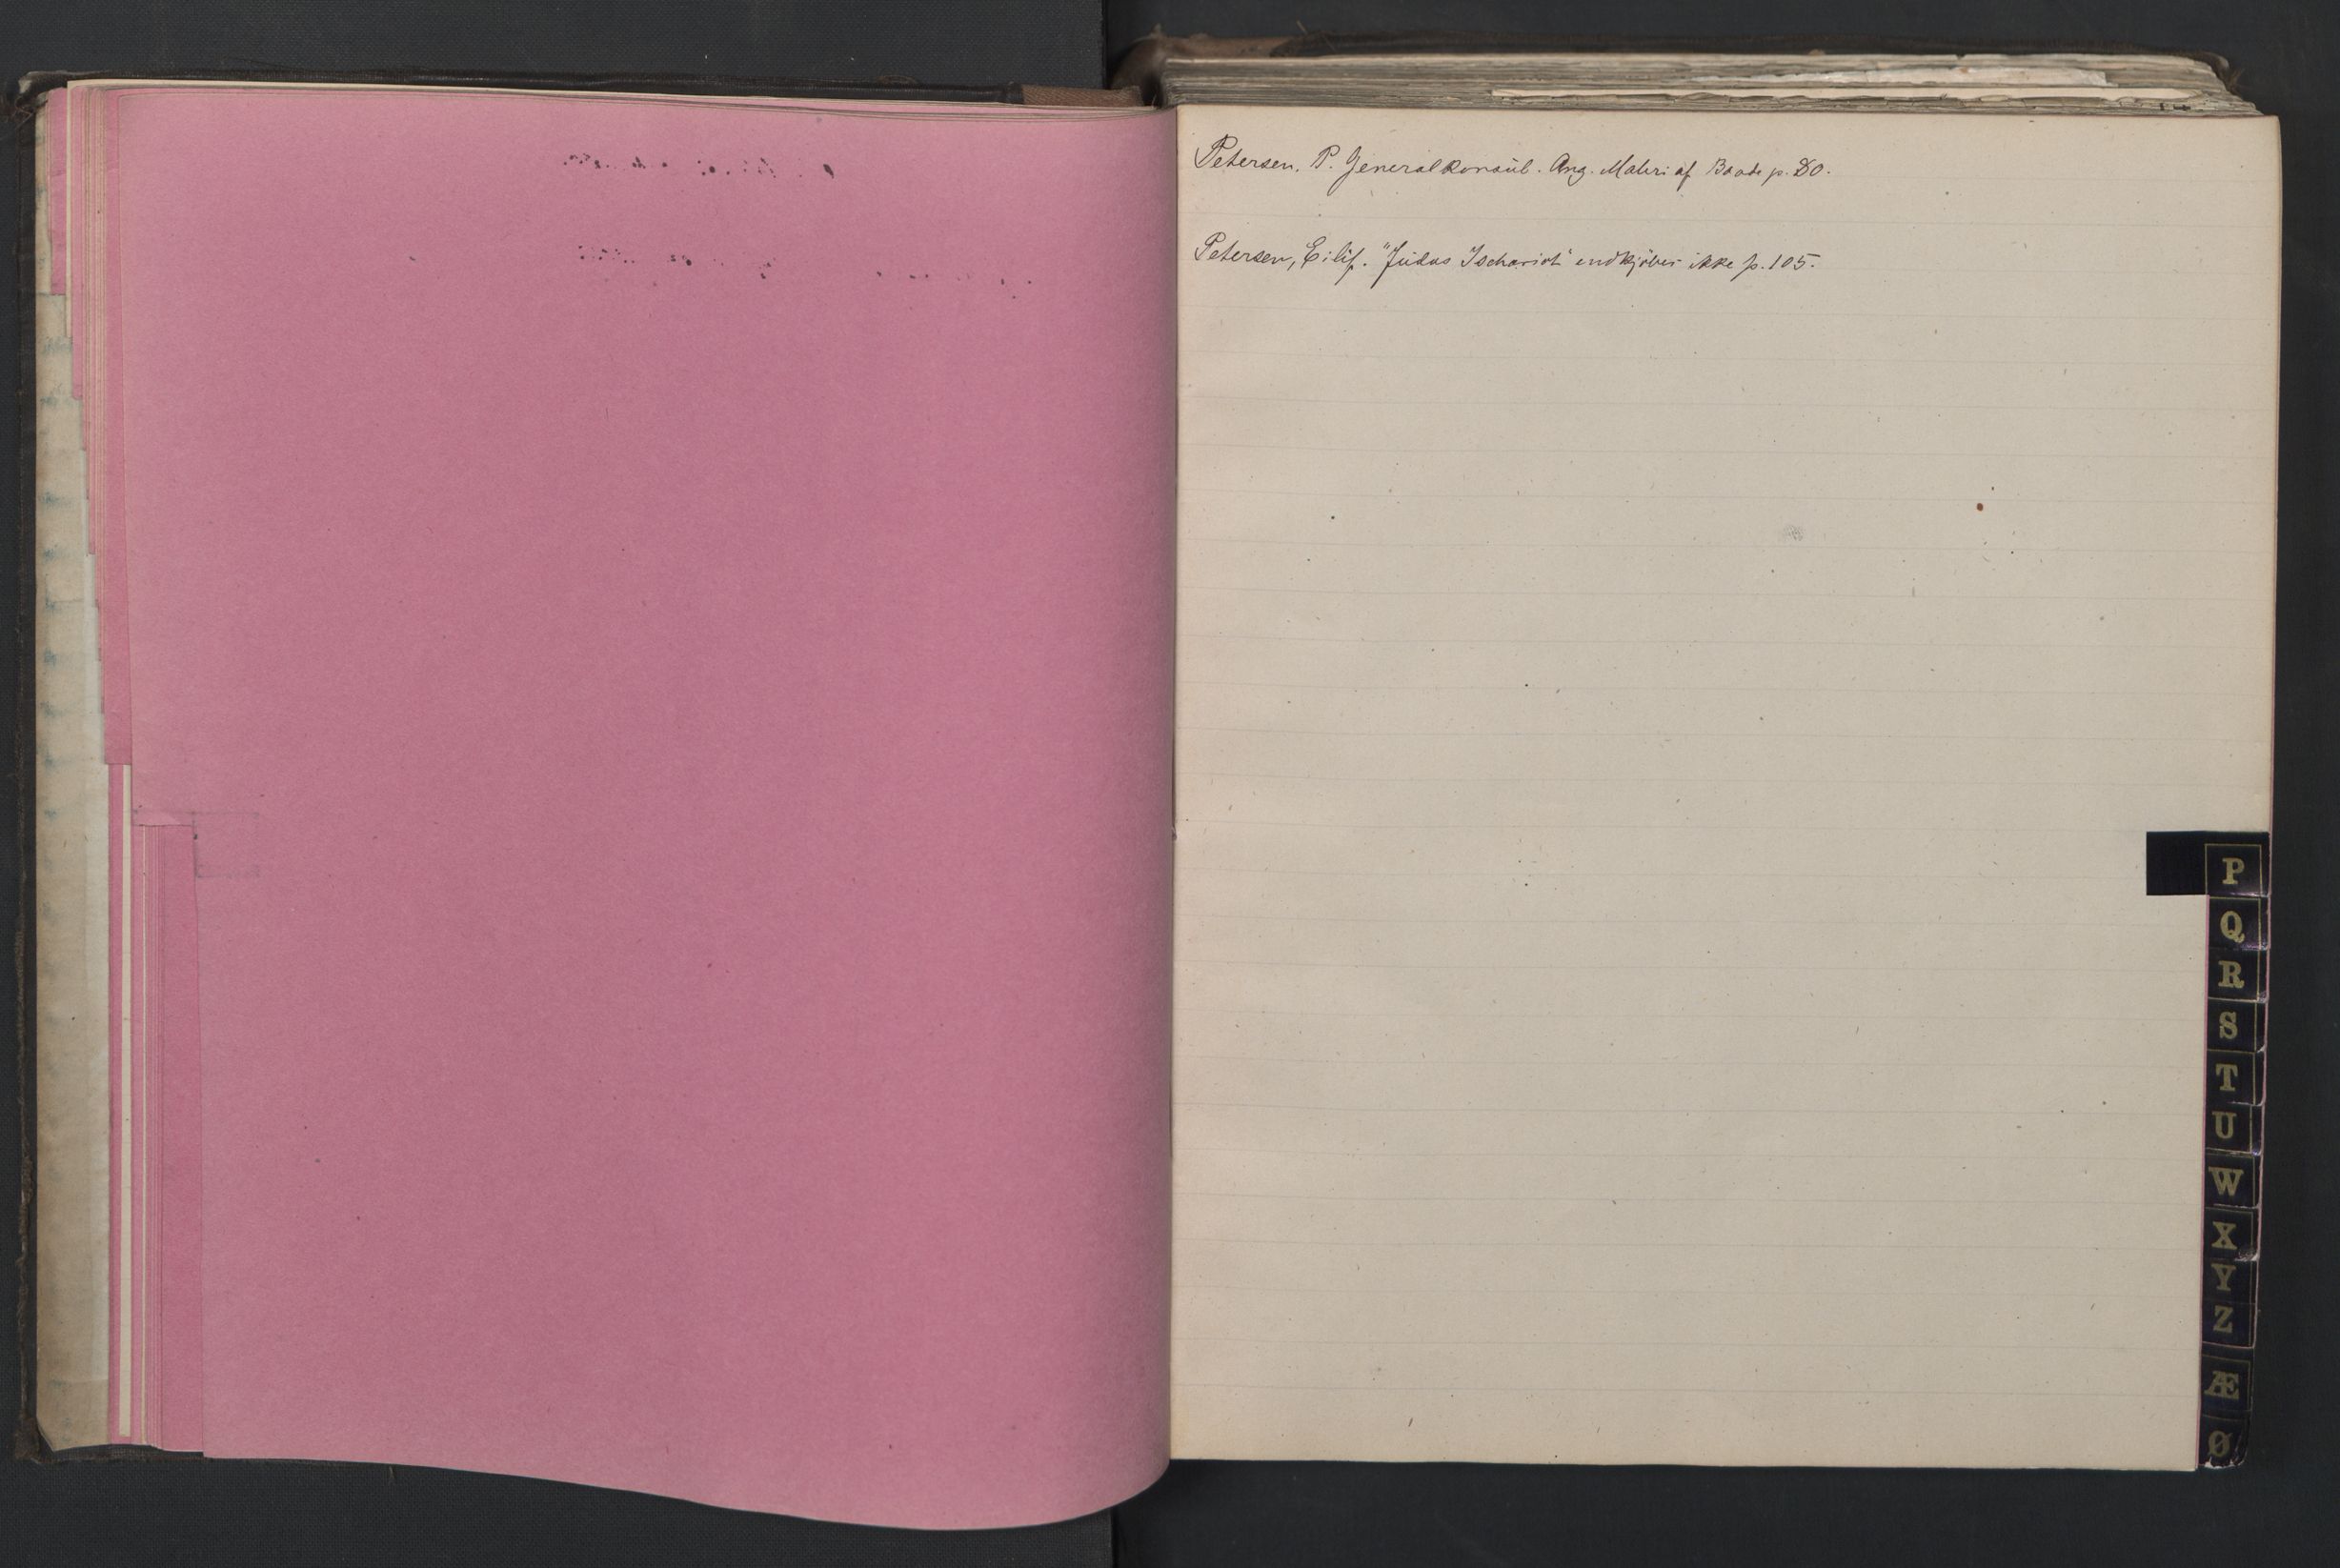 Petersen, P. Generalkonsul. Ang. Maleri af Baade p. 80.
Petersen, Eilif. "Judas Ischariot" indkjöbes ikke p. 105.
P
Q
R
S
T
U
W
X
Y
Z
Æ
Ø